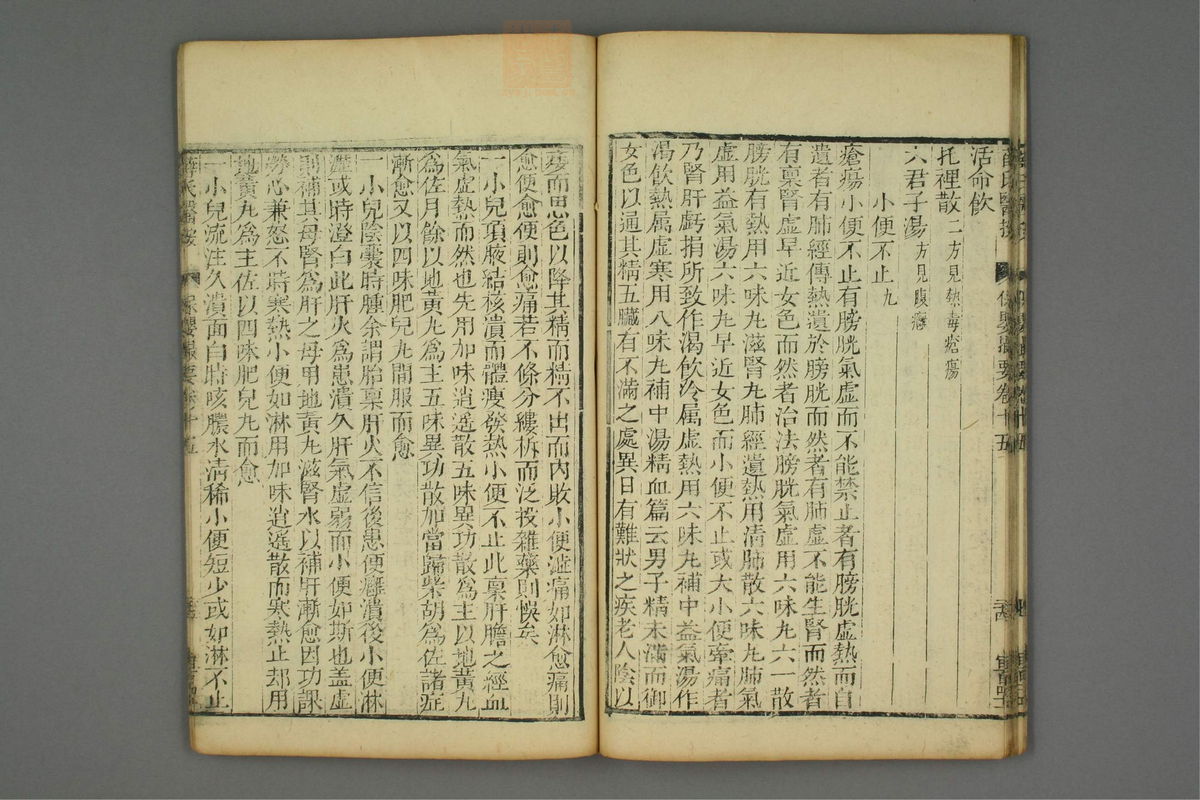 活命飲
托裡散二方見熱毒瘡瘍
六君子湯方見腹癰
小便不止九
瘡瘍小便不止有膀胱氣虛而不能禁止者有膀胱虛熱而自
遺者有肺經傳熱遺於膀胱而然者有肺虛不能生腎而然者
有稟腎虛早近女色而然者治法膀胱氣虛用六味丸六一散
膀胱有熱用六味丸滋腎丸肺經遺熱用清肺散六味丸肺氣
虛用益氣湯六味丸早近女色而小便不止或大小便牽痛者
乃腎肝虧損所致作渴飲冷属虛熱用六味丸補中益氣湯作
渴飲熱属虛寒用八味丸補中湯精血篇云男子精未滿而御
女色以通其精五臟有不滿之處異日有難狀之疾老人陰以
痿而思色以降其精而精不出而內敗小便澁痛如淋愈痛則
愈便愈便則愈痛若不條分縷析而泛投雜藥則悞矣
一小兒項腋結核潰而體瘦發熱小便不止此稟肝膽之經血
氣虛熱而然也先用加味逍遥散五味異功散為主以地黃丸
為佐月餘以地黃丸為主五味異功散加當歸柴胡為佐諸症
漸愈又以四味肥兒丸間服而愈
一小兒陰囊時腫余謂胎稟肝火不信後患便癰潰後小便淋
瀝或時澄白此肝火為患潰久肝氣虛弱而小便如斯也盖虛
則補其母腎為肝之母用地黃丸滋腎水以補肝漸愈因功課
勞心兼怒不時寒熱小便如淋用加味逍遥散而寒熱止却用
地黃丸為主佐以四味肥兒丸而愈
一小兒流注久潰面白時咳膿水清稀小便短少或如淋不止
薛氏醫按 保嬰撮要卷十五